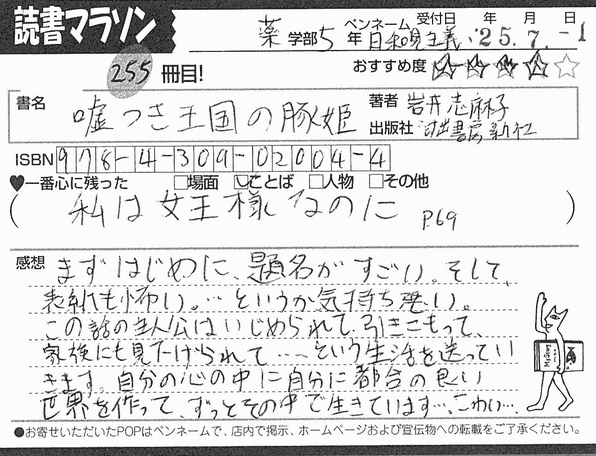 読書マラソン
薬 学部 5 年 ペンネーム 日和見主義 受付日 '25 年 7 月 -1 日
255 冊目! おすすめ度 ★★★★☆
書名 嘘つき王国の豚姫
著者 岩井志麻子
出版社 河出書房新社
ISBN 978-4-309-02004-4
♥一番心に残った □場面 ☑ことば □人物 □その他
(私は女王様なのに P.69)
感想 まずはじめに、題名がすごい。そして、
表紙も怖い。…というか気持ち悪い。
この話の主人公はいじめられて、引きこもって、
家族にも見下げられて……という生活を送ってい
きます。自分の心の中に自分に都合の良い
世界を作って、ずっとその中で生きています…、こわい…
●お寄せいただいたPOPはペンネームで、店内で掲示、ホームページおよび宣伝物への転載をご了承ください。